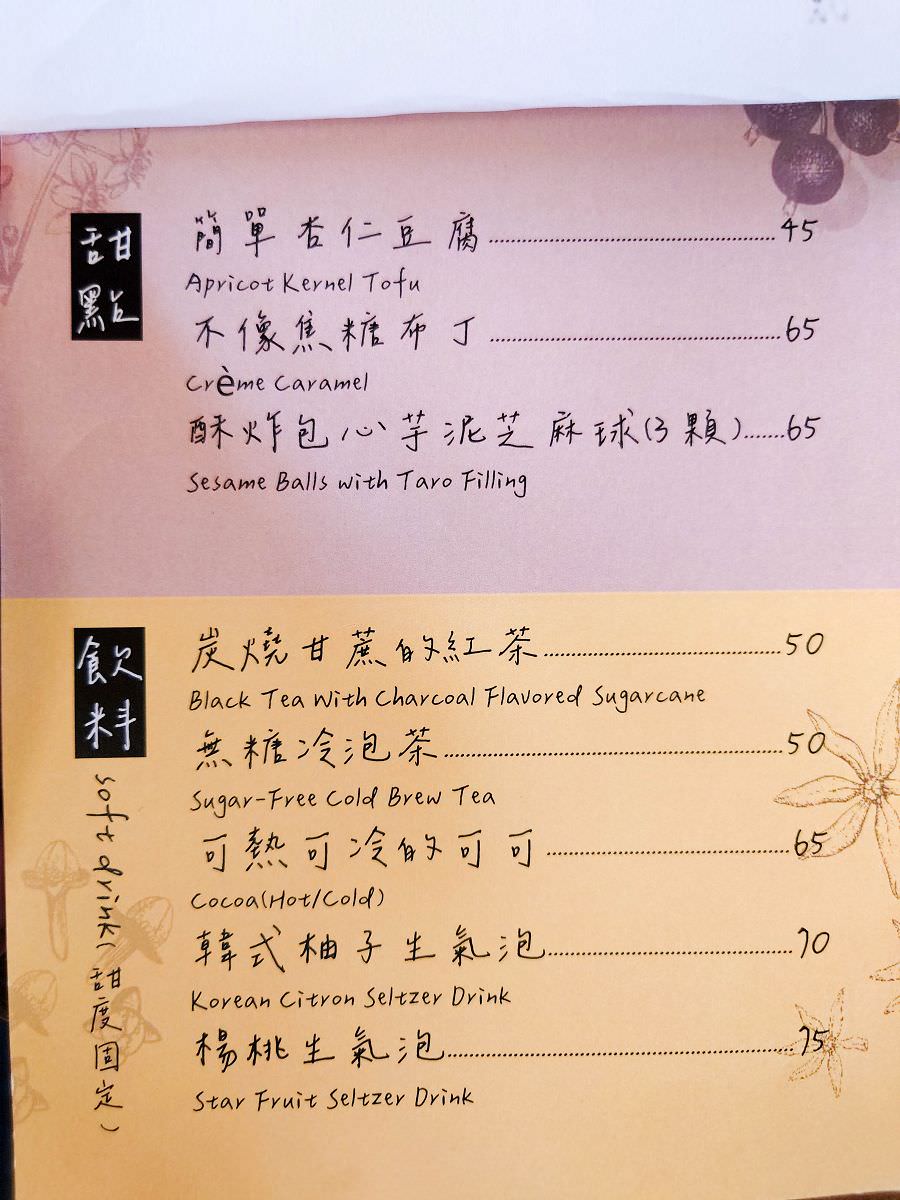 甜點
簡單杏仁豆腐..........45
Apricot Kernel Tofu
不像焦糖布丁..........65
Crème Caramel
酥炸包心芋泥芝麻球(3顆).......65
Sesame Balls with Taro Filling
飲料
soft drink(甜度固定)
炭燒甘蔗的紅茶..........50
Black Tea With Charcoal Flavored Sugarcane
無糖冷泡茶..........50
Sugar-Free Cold Brew Tea
可熱可冷的可可..........65
Cocoa(Hot/Cold)
韓式柚子生氣泡..........70
Korean Citron Seltzer Drink
楊桃生氣泡..........75
Star Fruit Seltzer Drink